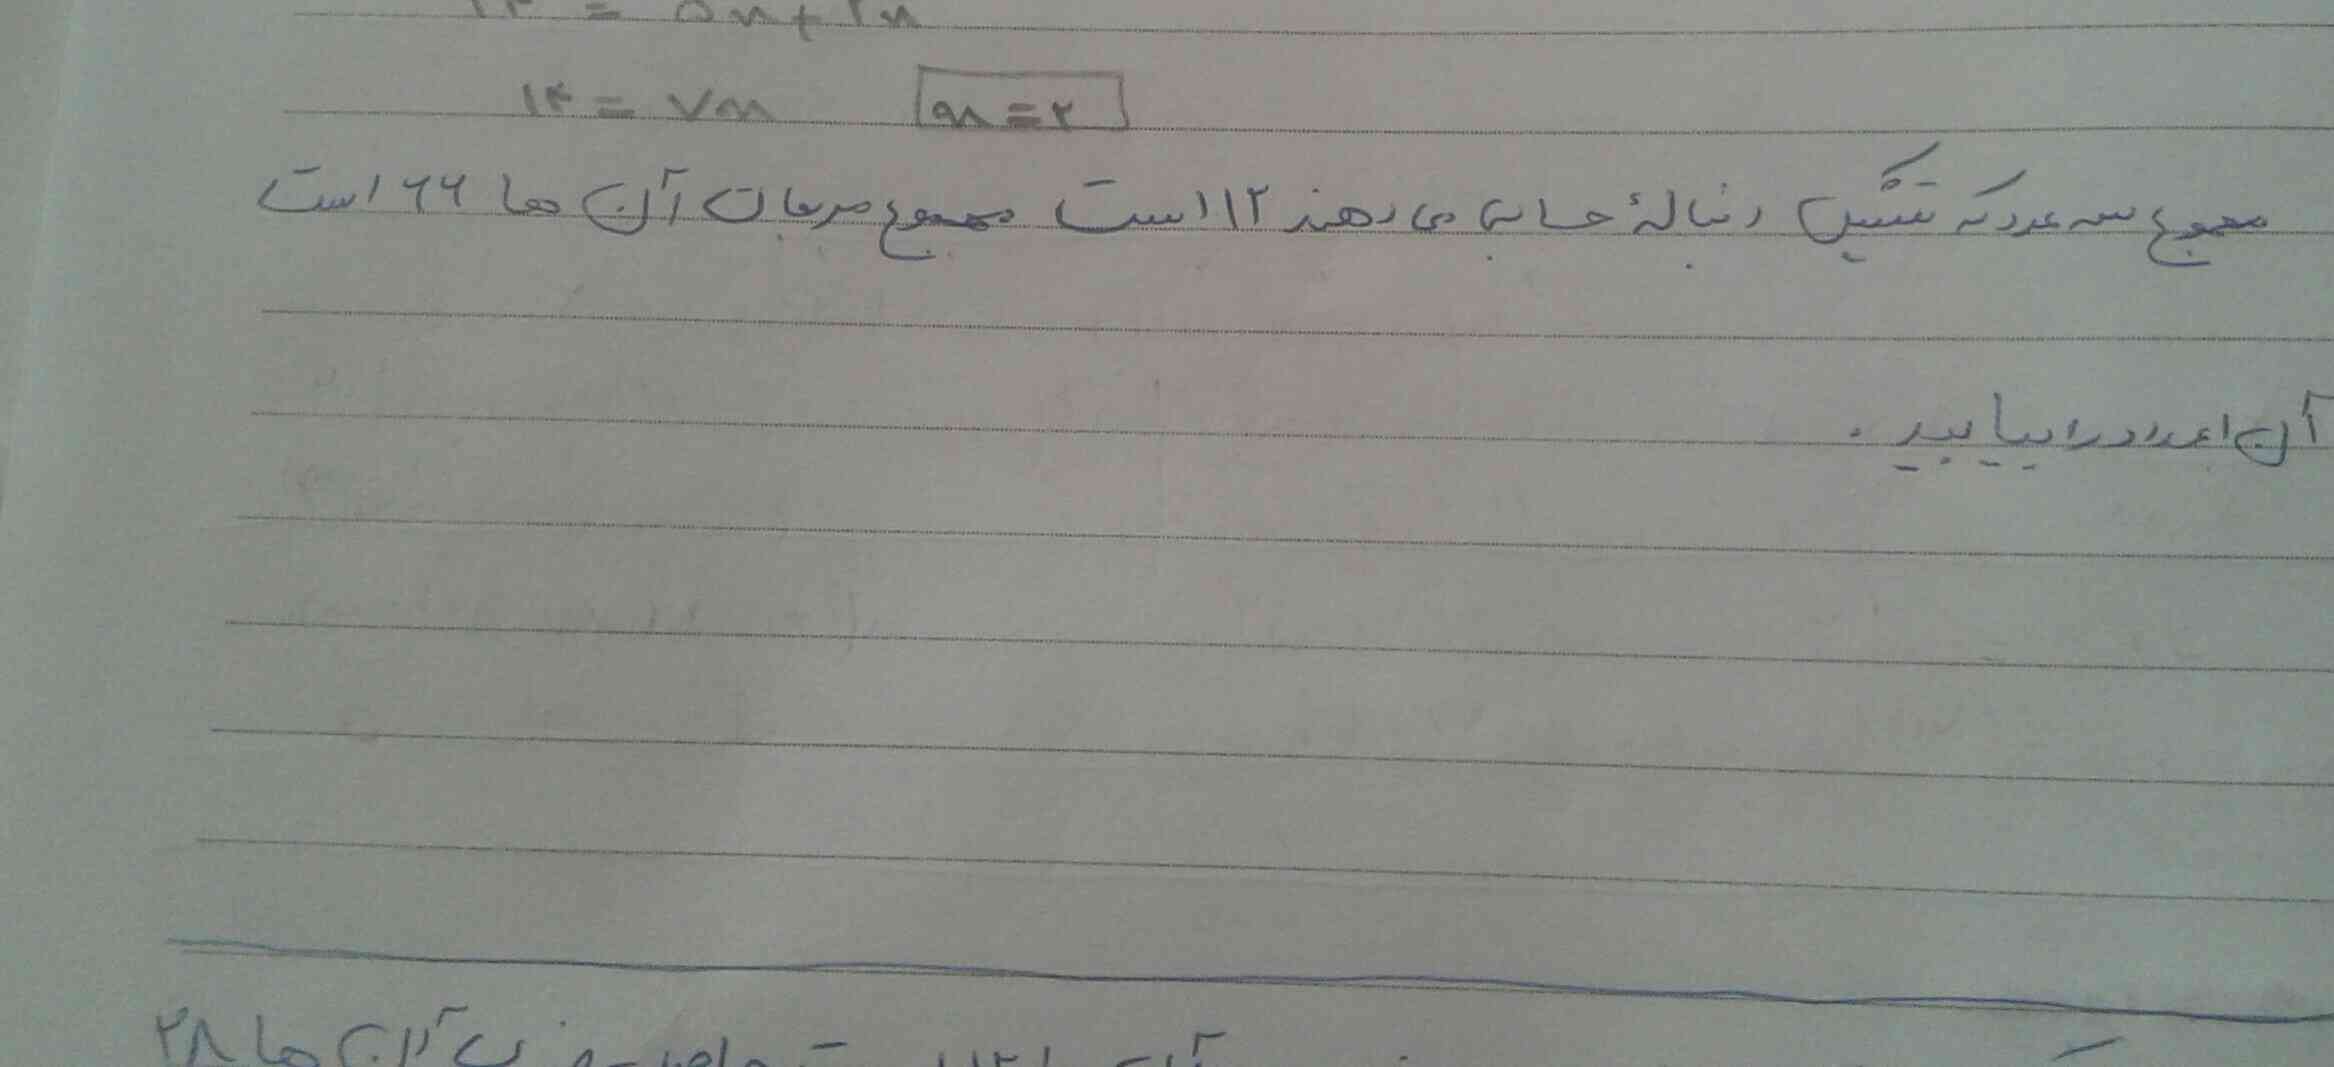 ۱۴ = ۷x x=۲
مجموع سه عدد که تشکیل دنبالهٔ حسابی می دهند ۱۲ است مجموع مربعات آن ها ۶۶ است
آن اعداد را بیابید.
آن ها ۲۸